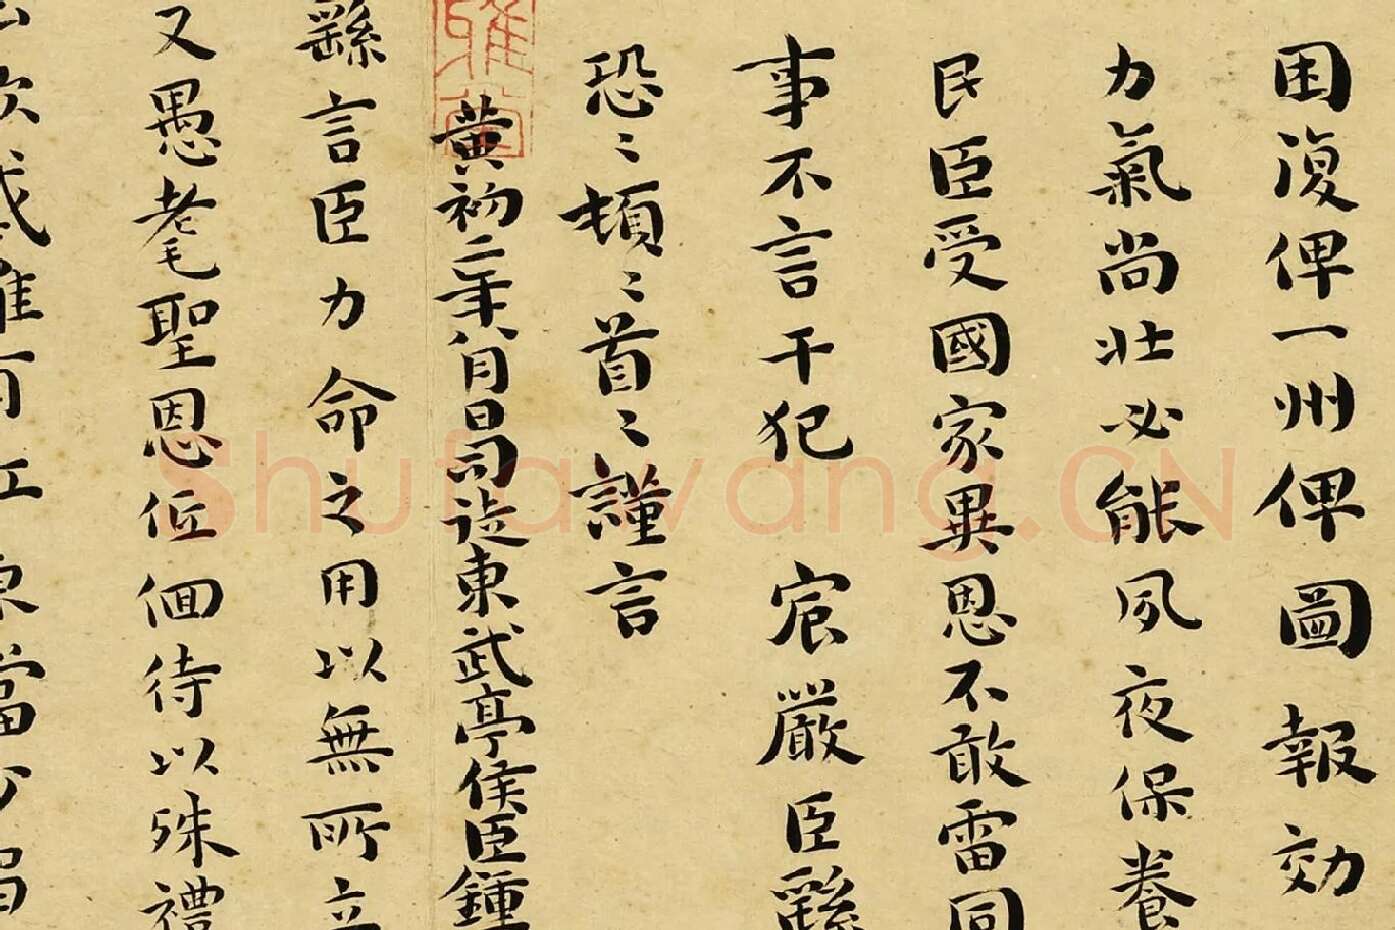 困復俾一州俾圖報效
力氣尚壯必能夙夜保養
民臣受國家異恩不敢雷同
事不言干犯 宸嚴臣繇
恐〻頓〻首〻謹言
黃初二年八月日司徒東武亭侯臣鍾
繇言臣力命之用以無所立
又愚耄聖恩低佪待以殊禮
Shufawang.CN